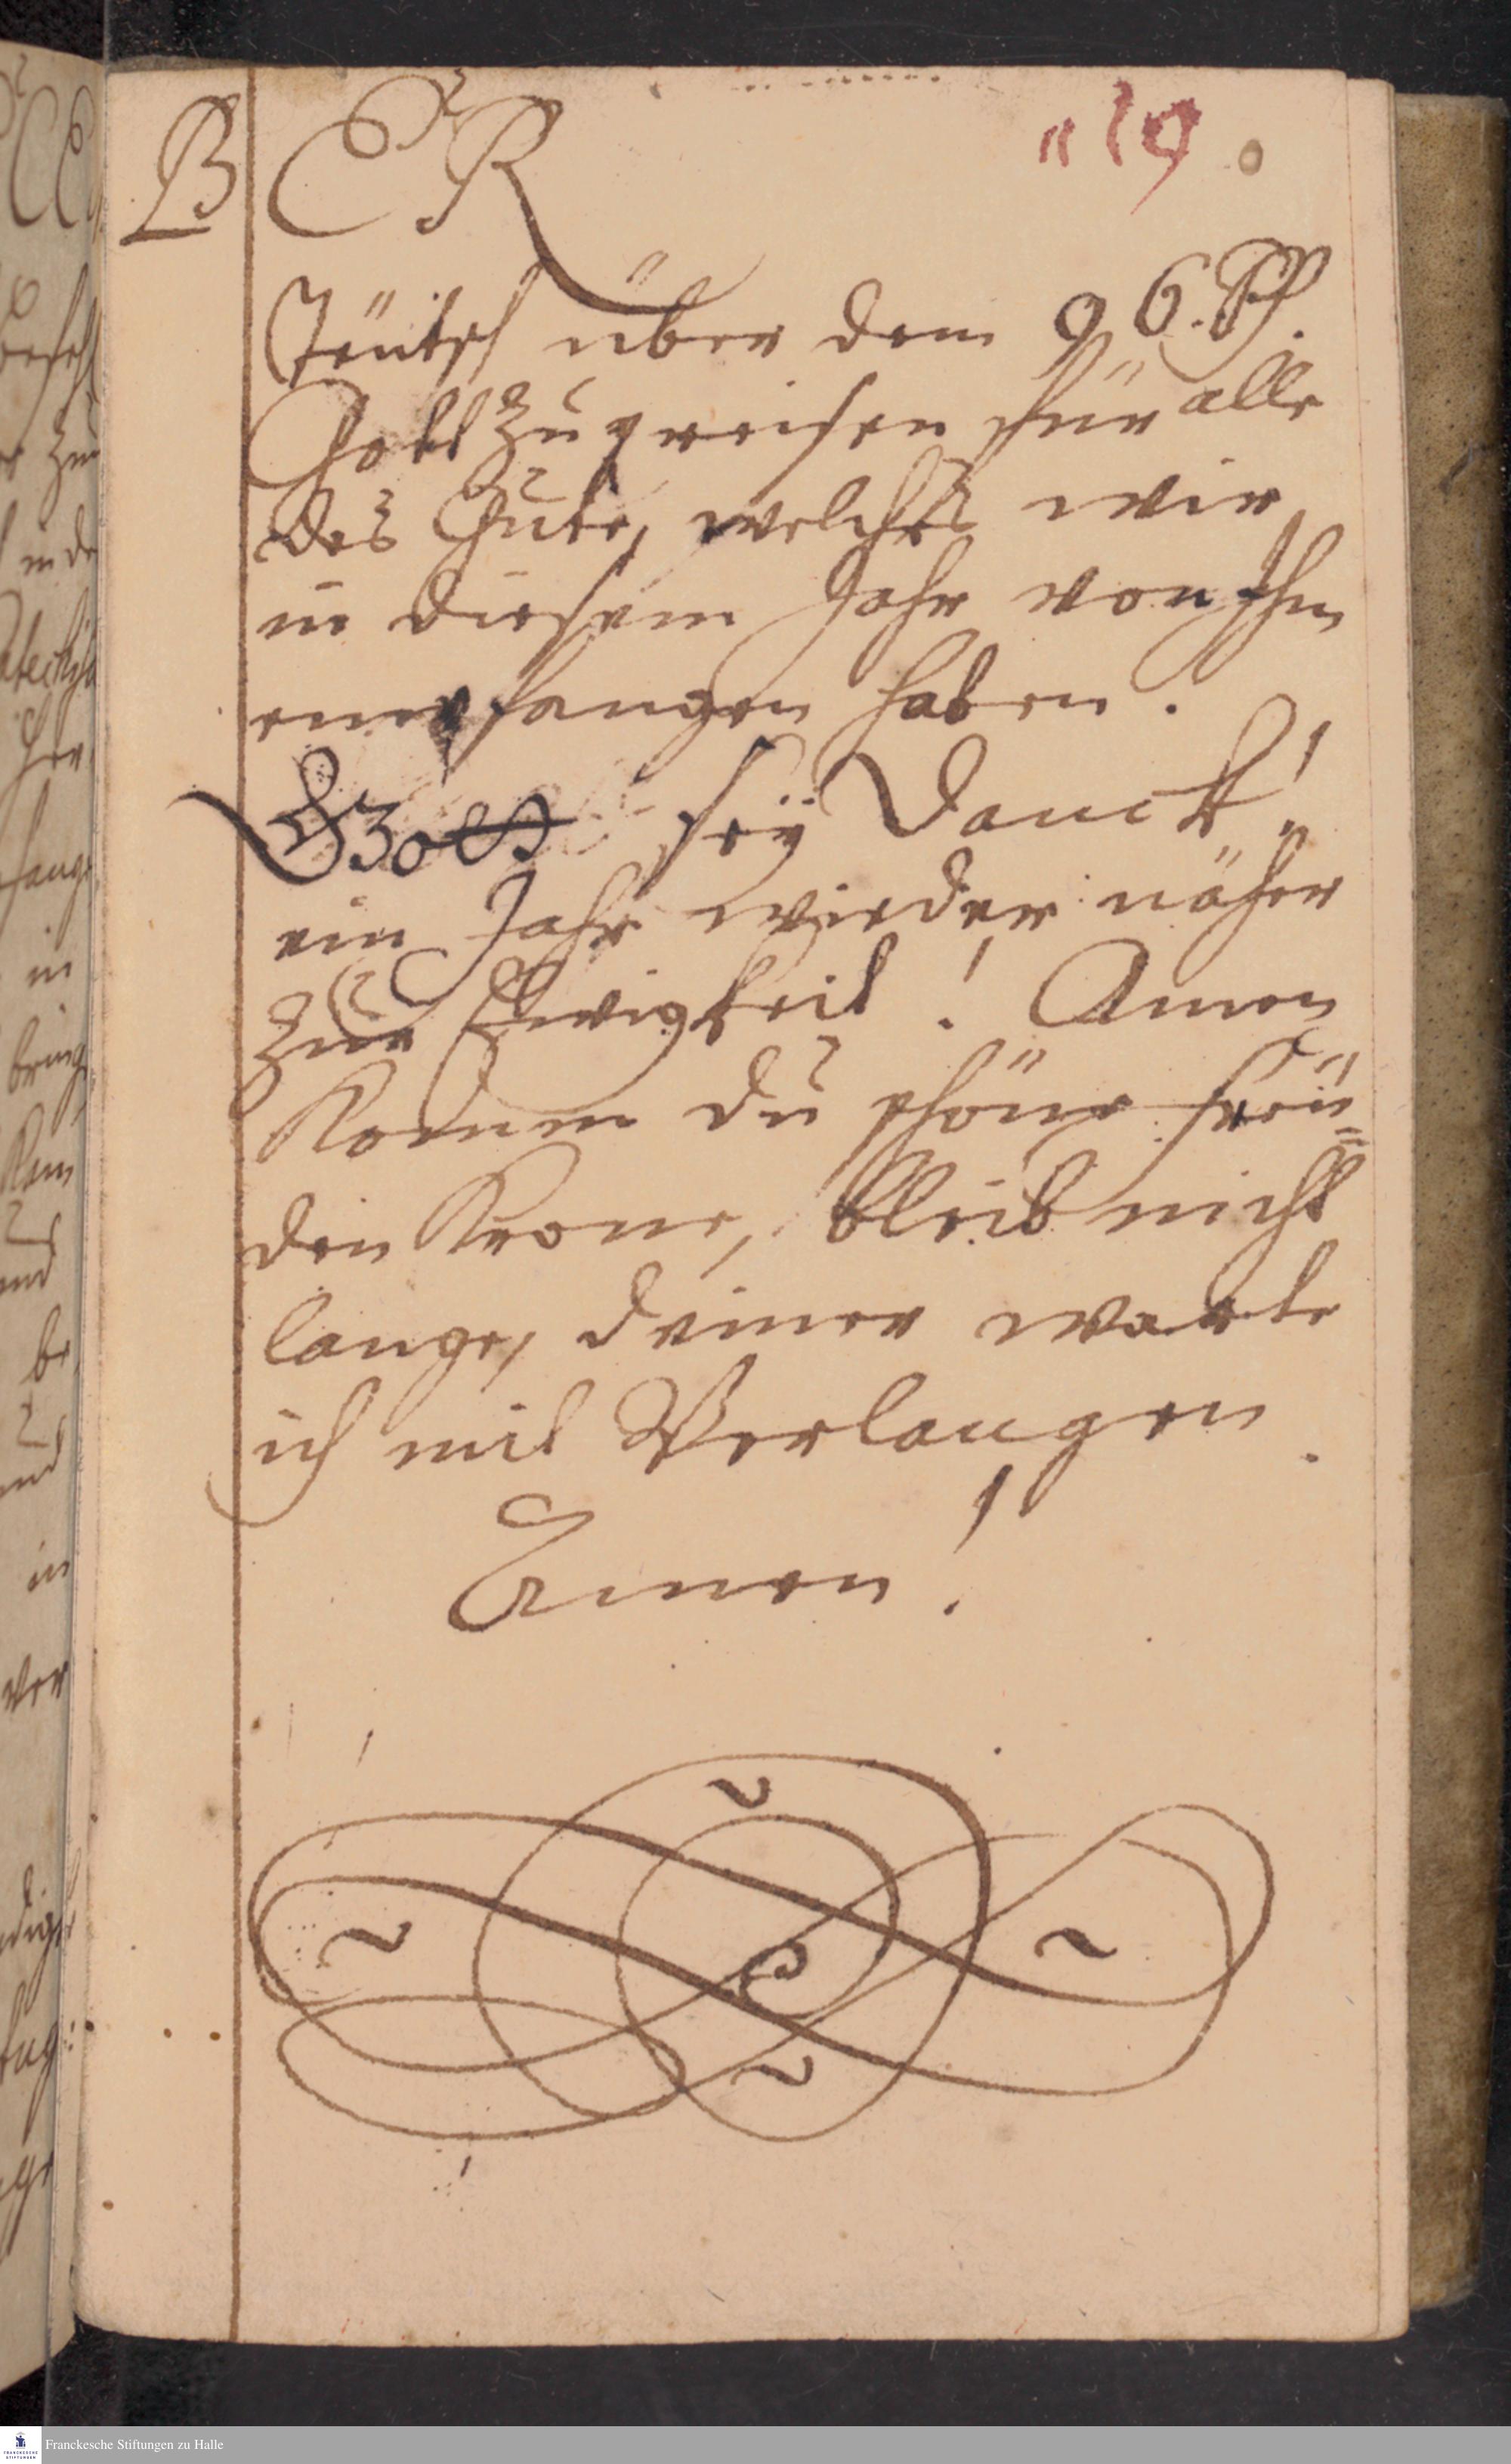 B CR "19.
Teütsch über dem 96. Ps.
Gott zu preisen für alle
das Gute, welches wir
in diesem Jahr von Ihm
empfangen haben.
sey Danck!
ein Jahr wieder näher
zur Ewigkeit! Amen
Komm du schöne Freü=
den Krone, bleib nicht
lange, deiner warte
ich mit Verlangen.
Amen!
Franckesche Stiftungen zu Halle